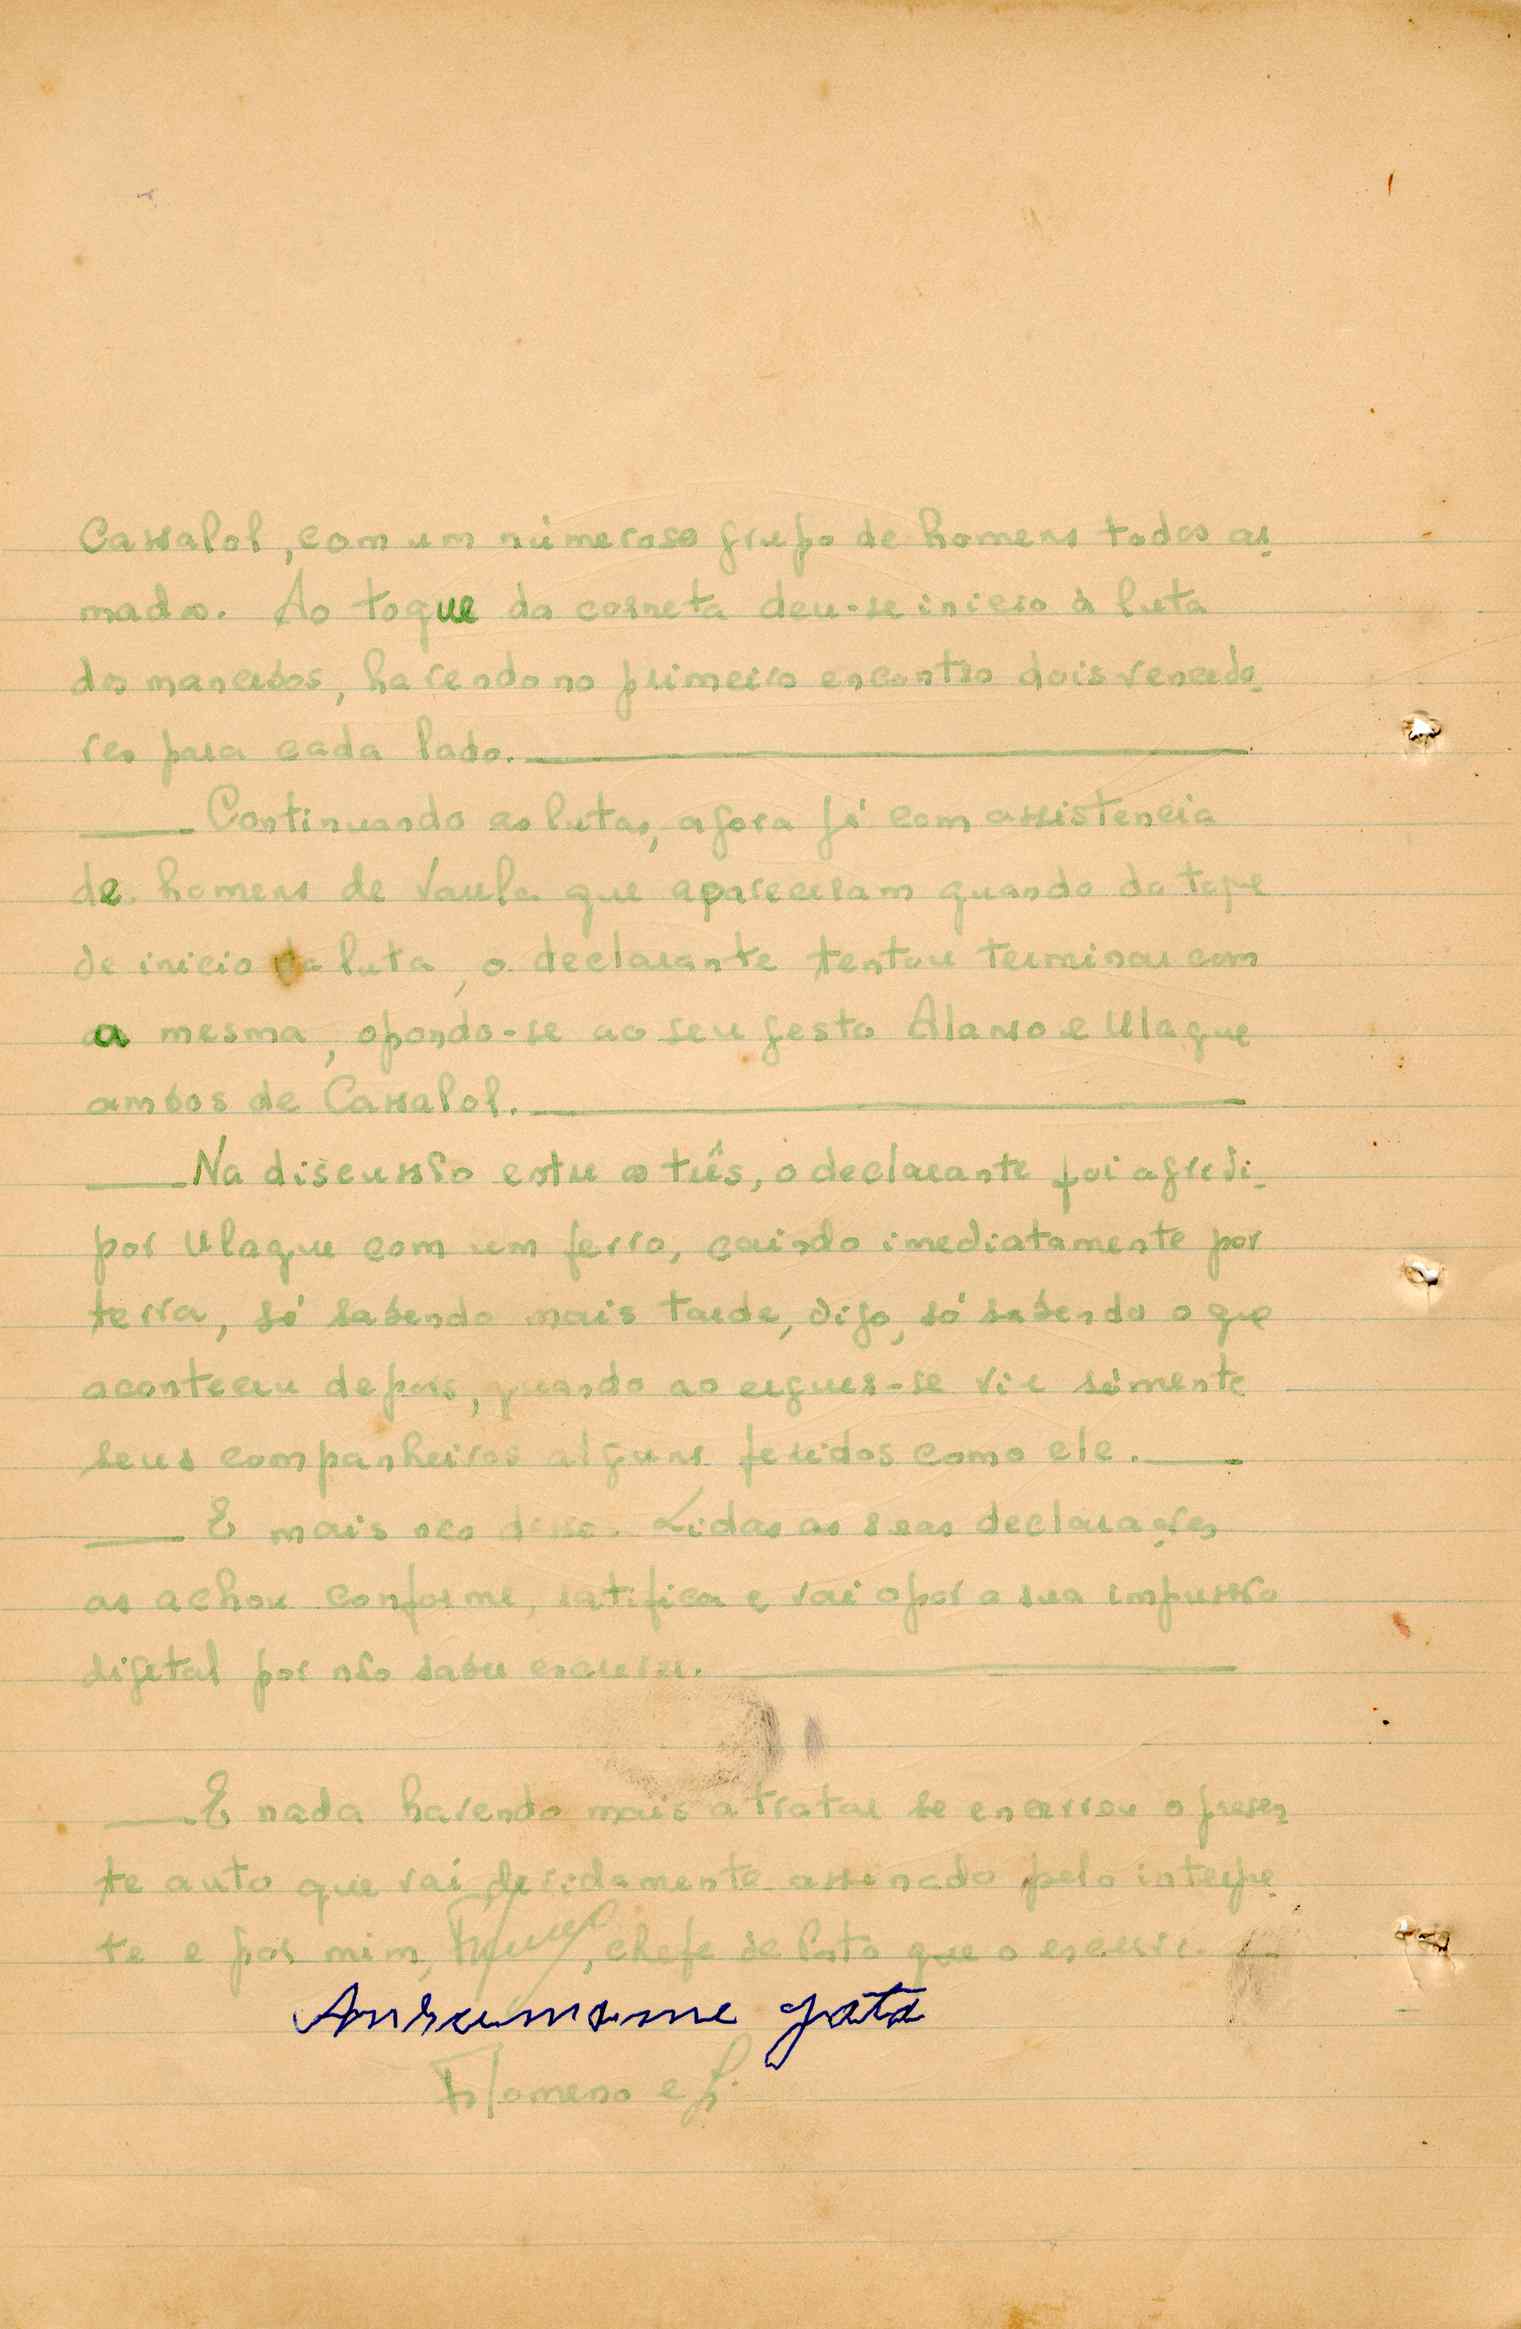 Cassalol, com um númeroso grupo de homens todos ar-
mados. Ao toque da corneta deu-se inicio à luta
dos mancebos, havendo no primeiro encontro dois vencedo-
res para cada lado.
Continuando as lutas, agora já com assistencia
de homens de Vaula que apareceram quando do toque
de inicio da luta, o declarante tentou terminar com
a mesma, opondo-se ao seu gesto Alanso e Ulaque
ambos de Cassalol.
Na discussão entre os três, o declarante foi agredi-
por Ulaque com um ferro, caindo imediatamente por
terra, só sabendo mais tarde, digo, só sabendo o que
aconteceu depois, quando ao erguer-se viu sómente
seus companheiros alguns feridos como ele.
E mais não disse. Lidas as suas declarações
as achou conforme, ratifica e vai opor a sua impressão
digital por não saber escrever.
E nada havendo mais a tratar se encerrou o presen-
te auto que vai devidamente assinado pelo interpe-
te e por mim, , chefe de Posto que o escrevi.